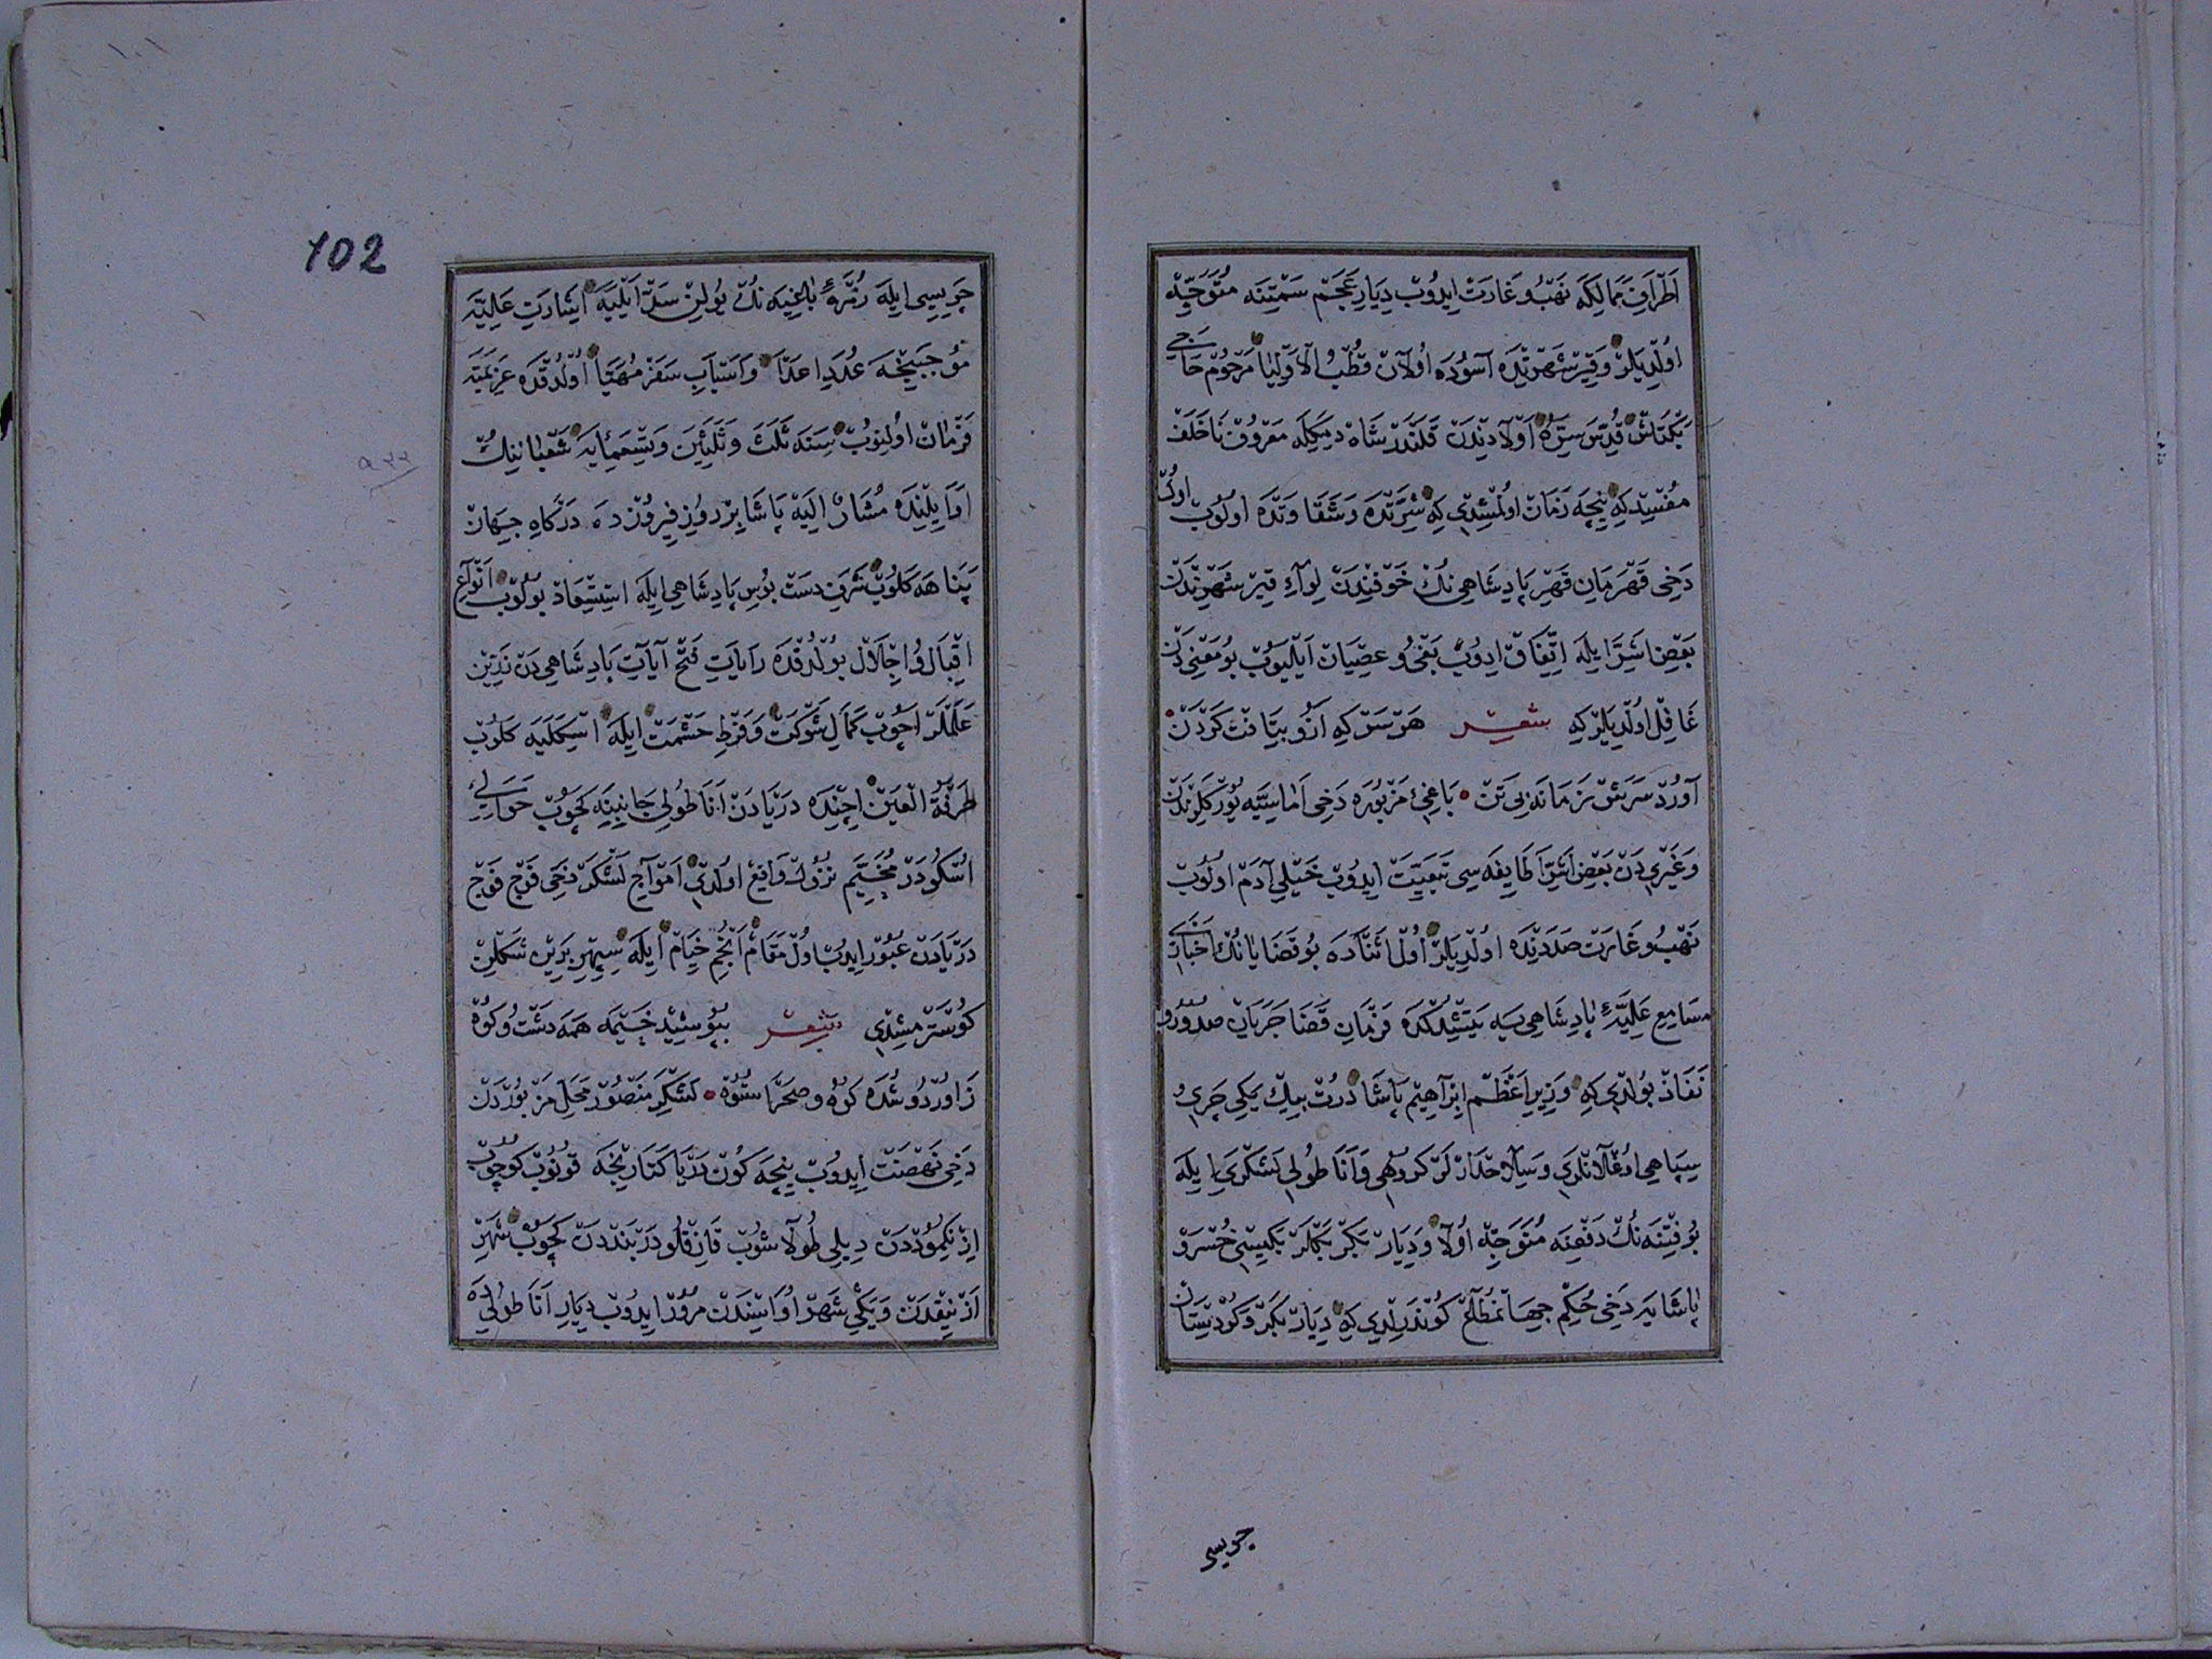 اَطْرَافِ مَمَالِكَه نَهْبُ و غَارَتْ ايدُوبْ دِيَارِ عَجَمْ سَمْتِنَه مُتَوَجِّهْ
اُولْدِيلَرْ وَقِيرْشَهْرِنْدَه آسُودَه اُولاَنْ قُطْبُ الاَوْلِيَا مَرْحُومْ حَاجِى
بَكْتَاشْ قُدِّسَ سِرُّهُ اَوْلاَدِنْدَنْ قَلَنْدَرْ شَاهْ دِيمَكِلَه مَعْرُوفْ نَاخَلَفْ
مُفْسِيد كِه نِيچَه زَمَانْ اولْمِشْدِى كِه شِرَّتْدَه وَ شَقَاوَتْدَه اولُوبْ اُولْ
دَخِى قَهْرَمَانِ قَهْرِ پَادِشَاهِى نُكْ خَوْفِنْدَنْ لِوَآءِ قِيرْشَهْرِنْدَنْ
بَعْضِ اَشِرَّا ايلَه اِتِّفَاقْ ايدُوبْ بَغْىُ و عِصْيَانْ اَيْلَيُوبْ بُو مَعْنِى دَنْ
غَافِلْ اُولْدِيلَرْ كِه شعر هَرْ سَرْ كِه ازُو بِيَافْتْ كَرْدَنْ
آوَرْدْ سَرَشْ زَمَانَه بِى تَنْ بَاغِىءِ مَزْبُورَه دَخِى اَمَاسِيَّه يُورُكْلَرِنْدَنْ
وَغَيْرِى دَنْ بَعْضِ اَشِقَّا طَايِفَه سِى تَبَعِيَّتْ ايدُوبْ خَيْلِى آدَمْ اولُوبْ
نَهْبُ و غَارَتْ صَدَدِنْدَه اولْدِيلَرْ اُولْ اَثْنَادَه بُو قَضَايَانُكْ اَخْبَارِى
مَسَامِعِ عَلِيَّهءِ پَادِشَاهِى يَه يَتِشْدُكْدَه فَرْمَانِ قَضَا جَرَيَانْ صُدُورُ و
نَفَاذْ بُولْدِى كِه وَزِيرِ اَعْظَمْ اِبْرَاهِيمْ پَاشَا دُرْتْ بِيكْ يَكِى چَرِى و
سِپَاهِى اوُغْلاَنْلَرِى وَ سِلاَحْدَارْلَرْ كُرُوهِى وَ اَنَاطُولِى لَشْكَرِى ايلَه
بُو فِتْنَه نُكْ دَفْعِنَه مُتَوَجِّهْ اُولاَ وَ دِيَارْ بَكْرْ بَكْلَرْبَكِيسِى خُسْرَوْ
پَاشَايَه دَخِى حُكْمِ جِهَانْمُطَاعْ كُونْدَرِلْدِى كِه دِيَارْ بَكْرْ وَ كُرْدِسْتَانْ
چريسى
102
١٠١
جَرِيسِى ايلَه زُمْرَهءِ بَاغِيَه نُكْ يُولِنْ سَدّْ اَيْلَيَه اِشَارَتِ عَلِيَّه
مُوجَبِنْجَه عُدَدِ اعدَا وَ اَسْبَابِ سَفَرْ مُهَيَّا اُولْدُقْدَه عَزِيمَتَه
فَرْمَانْ اولِنُوبْ سَنَه ثَلَثَ وَثَلَثِينَ وَتِسْعَمِائَه شَعْبَانِينُكْ
٩٣٣
اَوَايِلِنْدَه مُشَارٌ اِلَيْهْ پَاشَا بِرْ رُوزِ فِيرُوزْدَه دَرْكَاهِ جِهَانْ
پَنَاهَه كَلُوبْ شَرَفِ دَسْتْ بُوسِ پَادِشَاهِى ايلَه اِسْتِسْعَادْ بُولُوبْ اَنْوَاعِ
اِقْبَالُ و اِجْلاَلْ بُولْدُقْدَه رَايَاتِ فَتْحْ آيَاتِ پَادِشَاهِى دَنْ زَرِّينْ
عَلَمْلَرْ اَچُوبْ كَمَالِ شَوْكَتْ وَ فَرْطِ حَشْمَتْ ايلَه اسْكَلَيَه كَلُوبْ
طَرْفَةُ الْعَيْنْ اِچِنْدَه دَرْيَادَنْ اَنَاطُولِى جَانِبِنَه كَچُوبْ حَوَالِىءِ
اُسْكُودَرْ مُخَيَّمِ نُزُولْ وَاقِعْ اولْدِى اَمْوَاجِ لَشْكَرْ دَخِى فَوْجْ فَوْجْ
دَرْيَادَنْ عُبُورْ ايدُبْ اُولْ مَقَامْ اَنْجُمِ خِيَامْ ايلَه سِپِهْرِ بَرِينْ شَكْلِنْ
كُوسْتَرْمِشْدِى شعر بِپُوشِيدْ خَيْمَه هَمَه دَشْتُ و كُوهْ
زَاُورْدُو شُدَه كُوهُ و صَحْرَا سُتُوهْ لَشْكَرِ مَنْصُورْ مَحَلِّ مَزْبُورْدَنْ
دَخِى نَهْضَتْ ايدُوبْ نِيچَه كُونْ دَرْيَا كَنَارِنْجَه قونُوبْ كُوچُوبْ
اِزْنِكْمُودْدَنْ دِيلِى طُولاَشُوبْ قَازِقْلُو دَرْبَنْدَدَنْ كَچُوبْ شَهْرِ
اِزْنِيقْدَنْ وَيَكِى شَهْرْ اُوَاسِنْدَنْ مُرُورْ ايدُوبْ دِيَارِ اَنَاطُولِيدَه